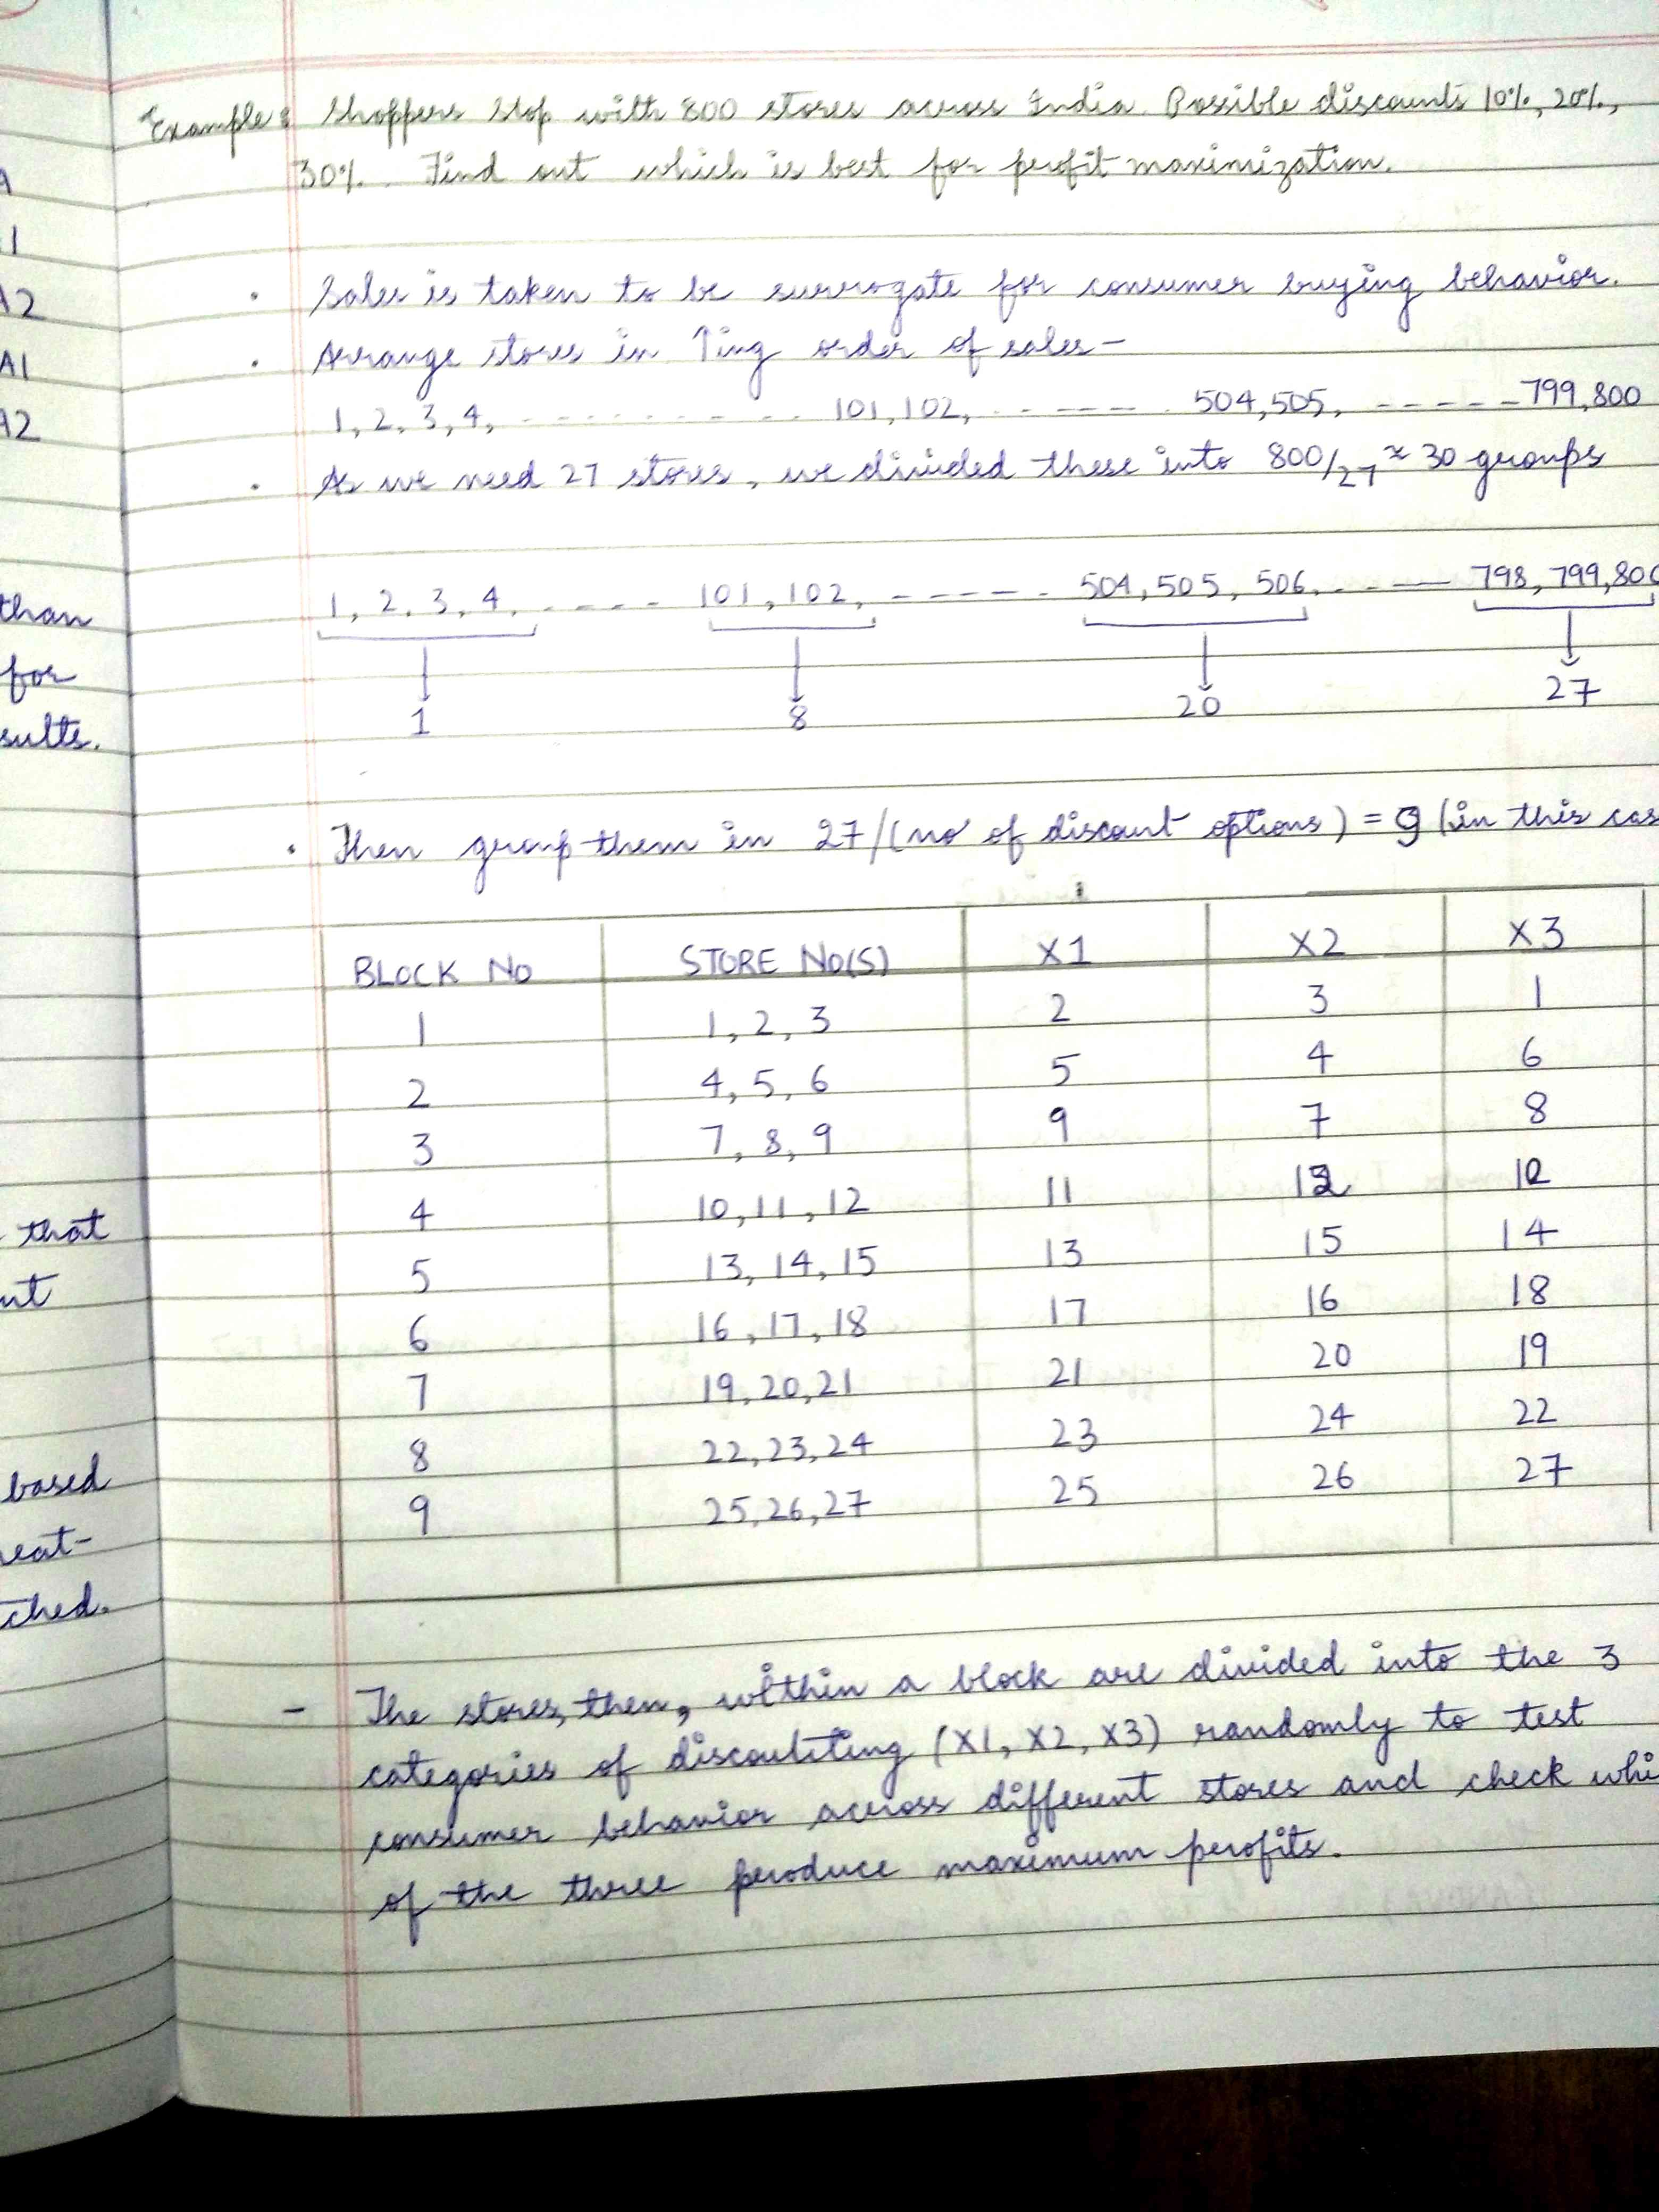 A
1
A2
A1
A2
than
for
sults.
that
nt
based
reat-
ched.
Example : Shoppers Stop with 800 stores across India. Possible discounts 10%, 20%,
30%. Find out which is best for profit maximization.
• Sales is taken to be surrogate for consumer buying behavior.
• Arrange stores in ↑ing order of sales -
1, 2, 3, 4, - - - - - - - - - 101, 102, - - - - - 504, 505, - - - - - 799, 800
• As we need 27 stores, we divided these into 800/27 ≈ 30 groups
1, 2, 3, 4, - - - - 101, 102, - - - - - 504, 505, 506, - - - 798, 799, 800
1 8 20 27
• Then group them in 27/(no of discount options) = 9 (in this cas
BLOCK NO STORE NO(S) X1 X2 X3
1 1, 2, 3 2 3 1
2 4, 5, 6 5 4 6
3 7, 8, 9 9 7 8
4 10, 11, 12 11 12 10
5 13, 14, 15 13 15 14
6 16, 17, 18 17 16 18
7 19, 20, 21 21 20 19
8 22, 23, 24 23 24 22
9 25, 26, 27 25 26 27
- The stores, then, within a block are divided into the 3
categories of discounting (X1, X2, X3) randomly to test
consumer behavior across different stores and check whi
of the three produce maximum profits.